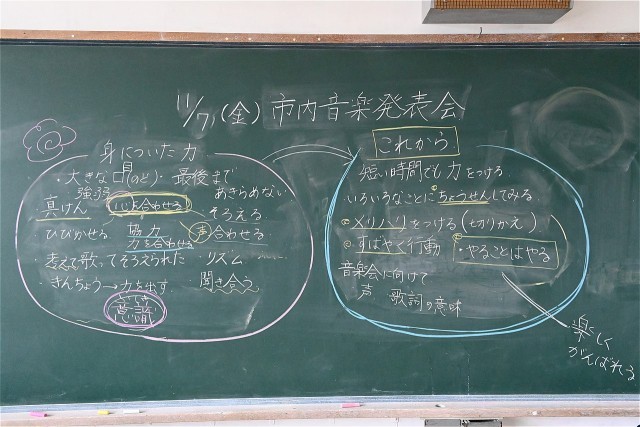 11/7(金) 市内音楽発表会
身についた力
・大きな口(のど)・最後まで
強弱 あきらめない
真けん 心を合わせる そろえる
ひびかせる 協力 声合わせる
力を合わせる
・考えて歌ってそろえられた ・リズム
・きんちょう→力を出す ・聞き合う
いしき
意識
これから
短い時間でも力をつける
いろいろなことにちょうせんしてみる
メリハリをつける(切りかえ)
すばやく行動 ・やることはやる
音楽会に向けて
声 歌詞の意味
楽しく
がんばれる